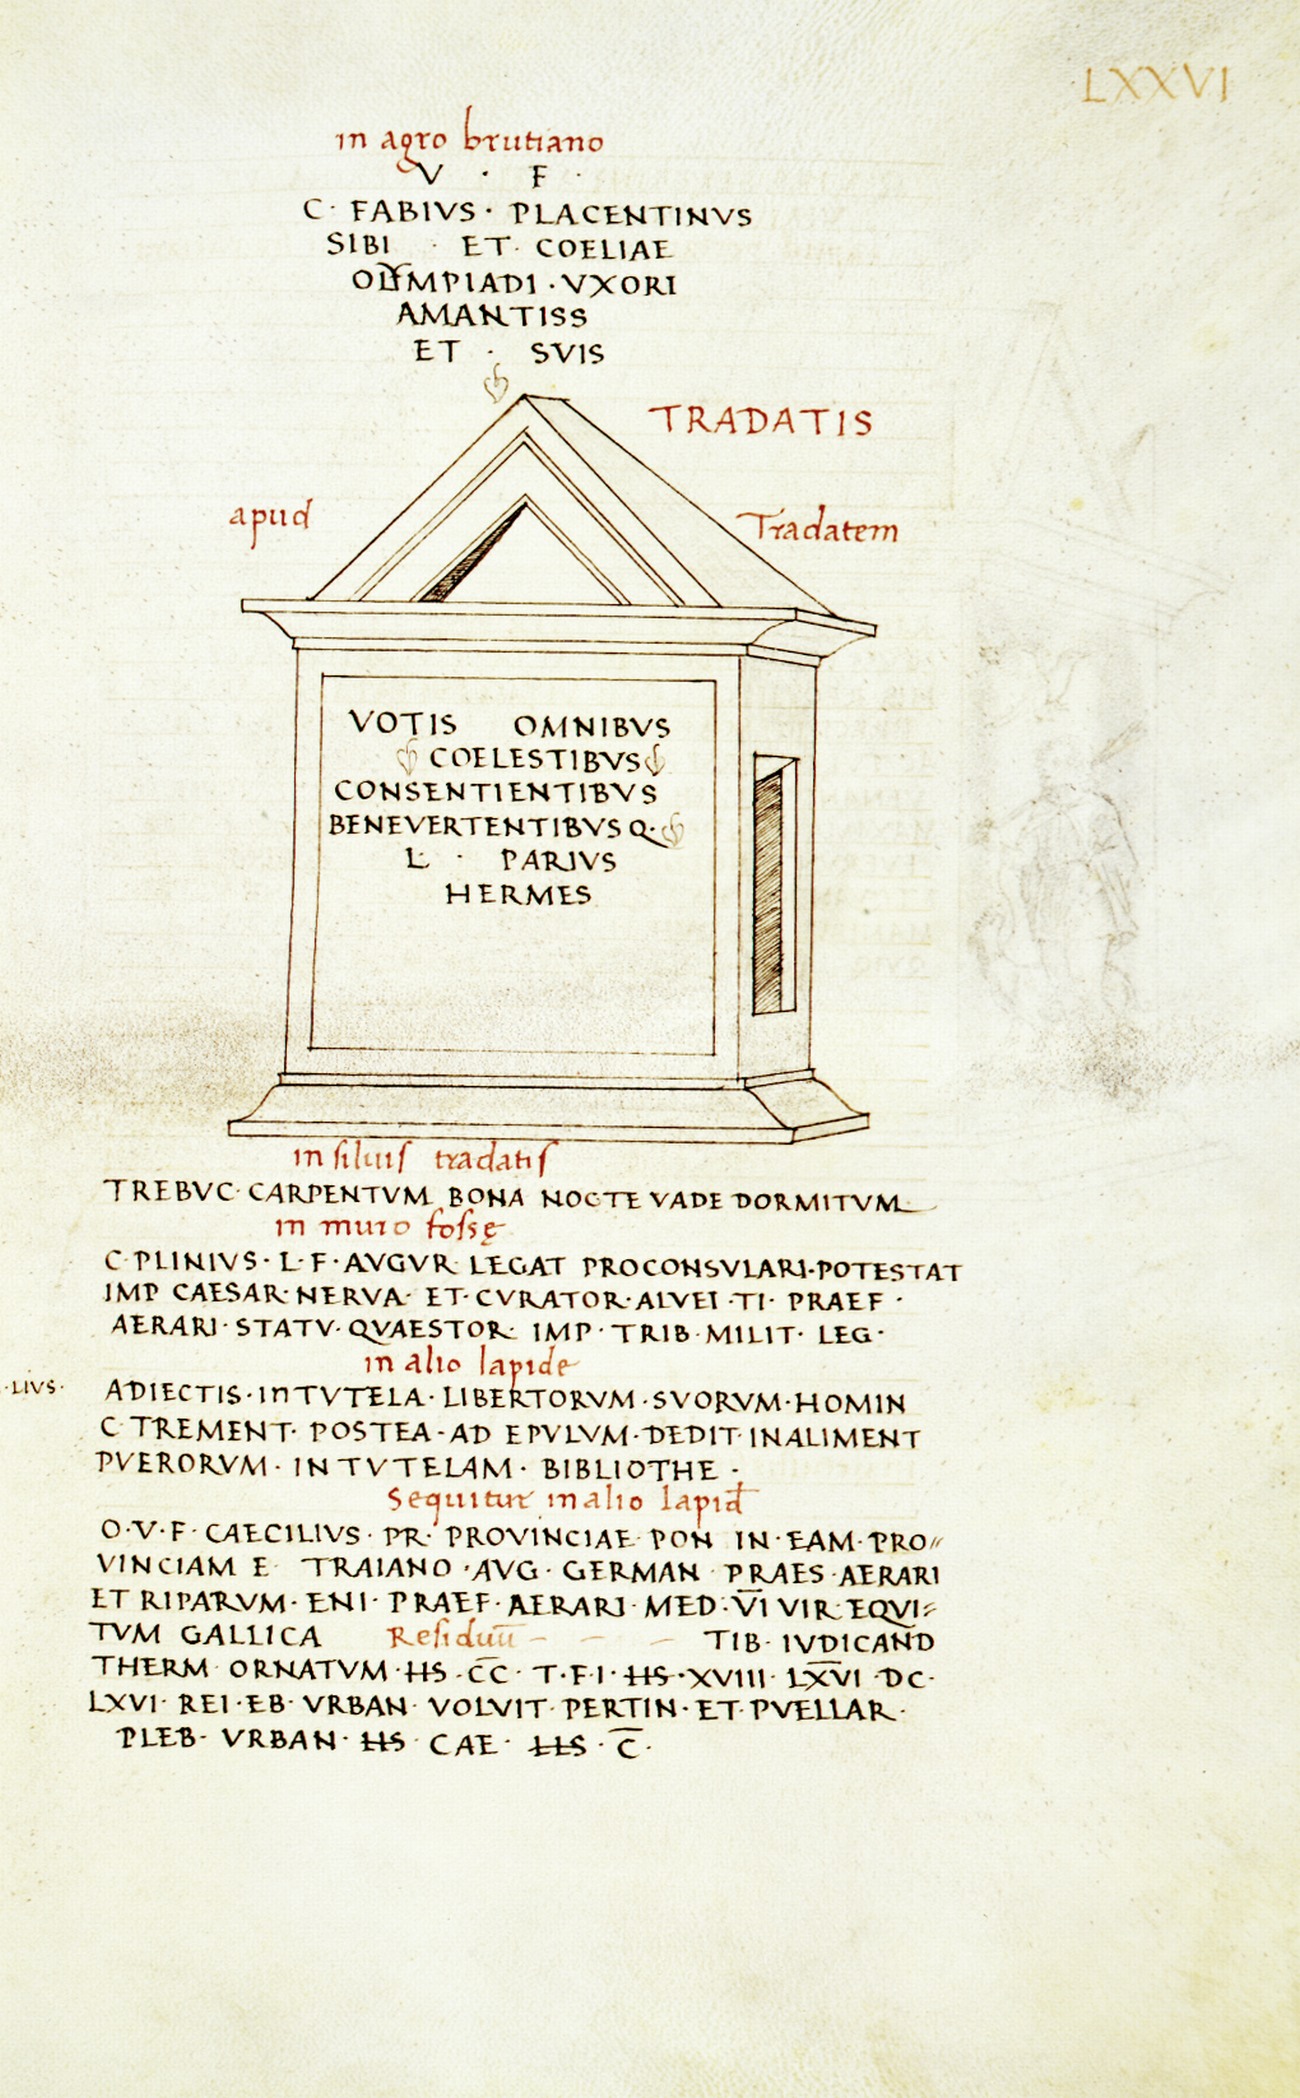 LXXVI
in agro brutiano
V · F ·
C · FABIVS · PLACENTINVS
SIBI · ET · COELIAE
OLYMPIADI · VXORI
AMANTISS
ET · SVIS
TRADATIS
apud Tradatem
VOTIS OMNIBVS
COELESTIBVS
CONSENTIENTIBVS
BENEVERTENTIBVS Q ·
L · PARIVS
HERMES
in siluis tradatis
TREBVC · CARPENTVM BONA NOCTE VADE DORMITVM
in muro fossę
C · PLINIVS · L · F · AVGVR LEGAT PROCONSVLARI · POTESTAT
IMP CAESAR · NERVA · ET · CVRATOR · ALVEI · TI · PRAEF ·
AERARI · STATV · QVAESTOR · IMP · TRIB · MILIT · LEG ·
in alio lapide
· LIVS · ADIECTIS · IN TVTELA · LIBERTORVM · SVORVM · HOMIN
C · TREMENT · POSTEA · AD EPVLVM · DEDIT · IN ALIMENT
PVERORVM · IN TVTELAM · BIBLIOTHE ·
Sequitur in alio lapid
O · V · F · CAECILIVS · PR · PROVINCIAE PON IN · EAM · PRO//
VINCIAM E TRAIANO · AVG · GERMAN · PRAES · AERARI
ET RIPARVM · ENI · PRAEF · AERARI · MED · V̅I VIR EQVI//
TVM GALLICA Residuū – – – TIB · IVDICAND
THERM ORNATVM · HS · C̅C̅ · T · F · I · HS · XVIII · LX̅VI · DC ·
LXVI · REI · EB · VRBAN · VOLVIT · PERTIN · ET · PVELLAR ·
PLEB · VRBAN · HS · CAE · HS · C̅ ·